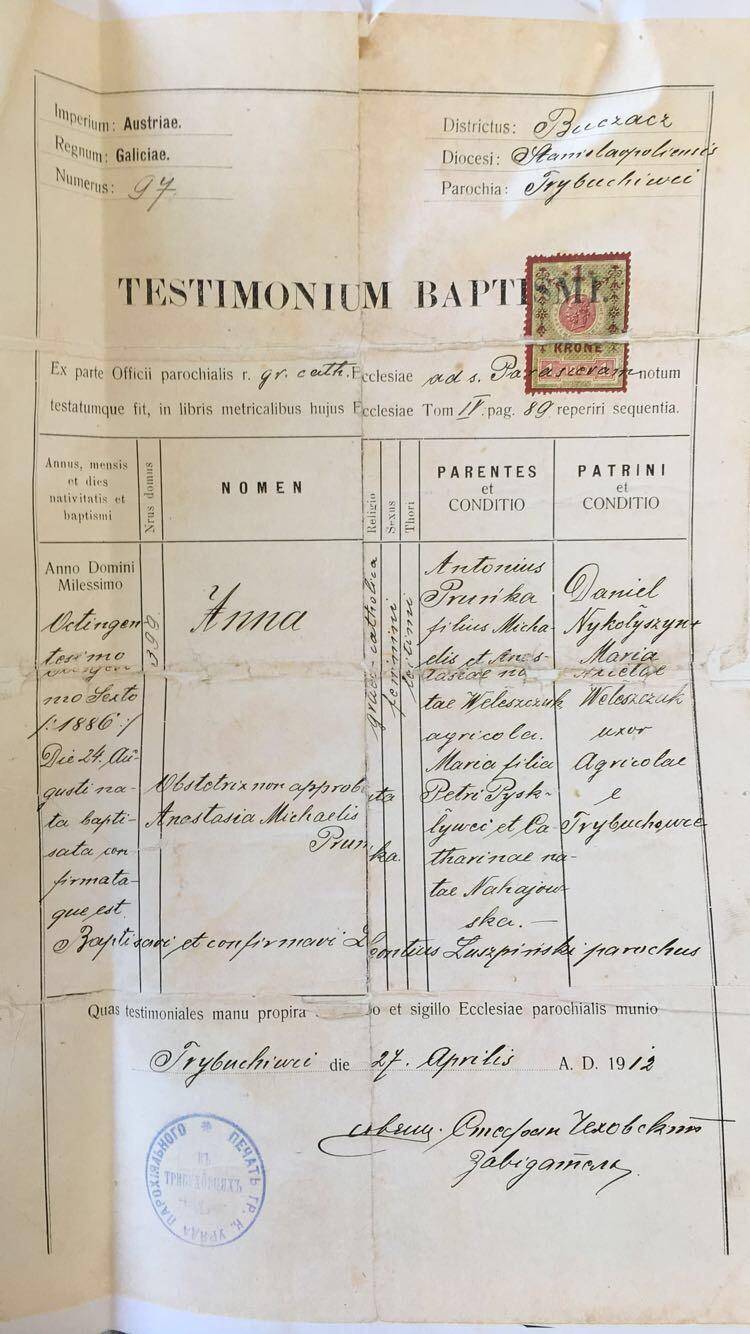 Imperium: Austriae.
Regnum: Galiciae.
Numerus: 97.
Districtus: Buczacz
Diocesi: Stanislaopoliensis
Parochia: Trybuchiwci
TESTIMONIUM BAPTISMI.
1
KRONE
Ex parte Officii parochialis r. gr. cath. Ecclesiae ad s. Parascevam notum
testatumque fit, in libris metricalibus hujus Ecclesiae Tom IV. pag. 89 reperiri sequentia.
Annus, mensis
et dies
nativitatis et
baptismi
Nrus domus
NOMEN
Religio
Sexus
Thori
PARENTES
et
CONDITIO
PATRINI
et
CONDITIO
Anno Domini
Milessimo
Octingen
tesimo
mo Sexto
/:1886:/
Die 24. Au-
gusti na-
ta bapti-
sata con
firmata-
que est.
399
Anna
Obstetrix non approbata
Anastasia Michaelis
Prunka.
graeco-catholica
feminini
Antonius
Prunka
filius Micha-
elis et Anas-
tasiae na
tae Weleszczuk
agricola.
Maria filia
Petri Pysk-
lywci et Ca-
tharinae na-
tae Nahajow-
ska. —
Daniel
Nykołyszyn +
Maria
Weleszczuk
uxor
Agricolae
e
Trybuchowce
Baptisavi et confirmavi Leontius Luszpiński parochus
Quas testimoniales manu propira et sigillo Ecclesiae parochialis munio
Trybuchiwci die 27. Aprilis A. D. 1912
свящ. Стефан Чеховскій
Завідатель
ПЕЧАТЬ ГР. К. УРЯДА ПАРОХІЯЛЬНОГО
ВЪ
ТРИБУХОВЦЯХЪ